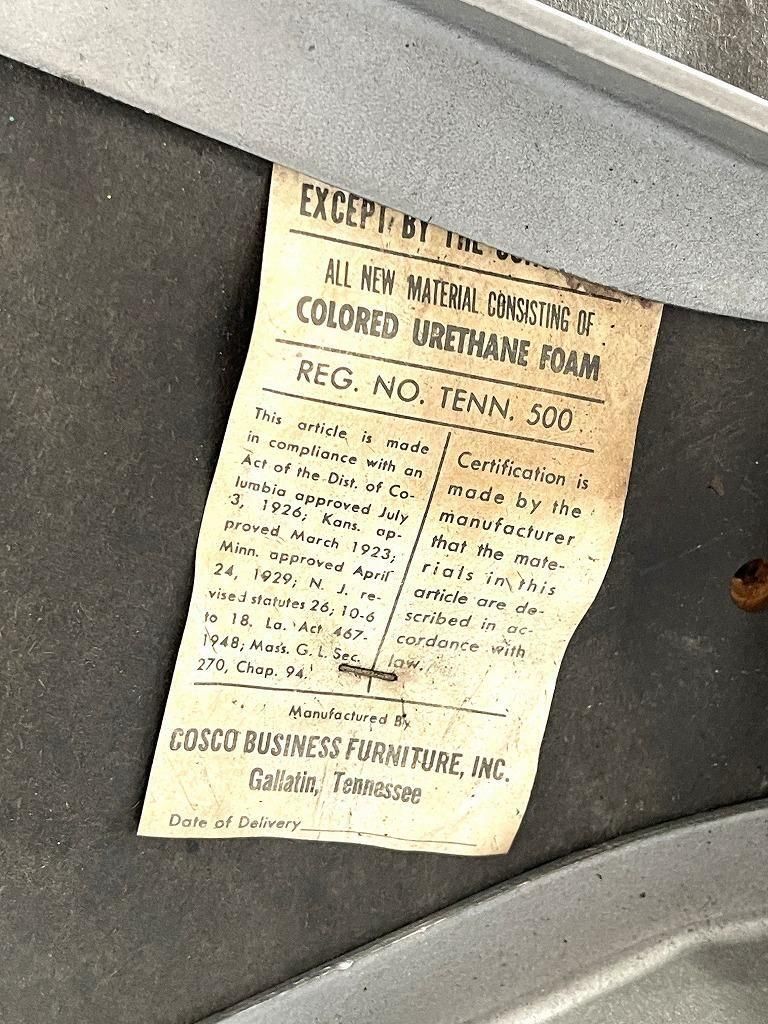 EXCEPT BY THE
ALL NEW MATERIAL CONSISTING OF
COLORED URETHANE FOAM
REG. NO. TENN. 500
This article is made
in compliance with an
Act of the Dist. of Co-
lumbia approved July
3, 1926; Kans. ap-
proved March 1923;
Minn. approved April
24, 1929; N. J. re-
vised statutes 26; 10-6
to 18. La. Act 467-
1948; Mass. G. L. Sec.
270, Chap. 94.
Certification is
made by the
manufacturer
that the mate-
rials in this
article are de-
scribed in ac-
cordance with
law.
Manufactured By
COSCO BUSINESS FURNITURE, INC.
Gallatin, Tennessee
Date of Delivery